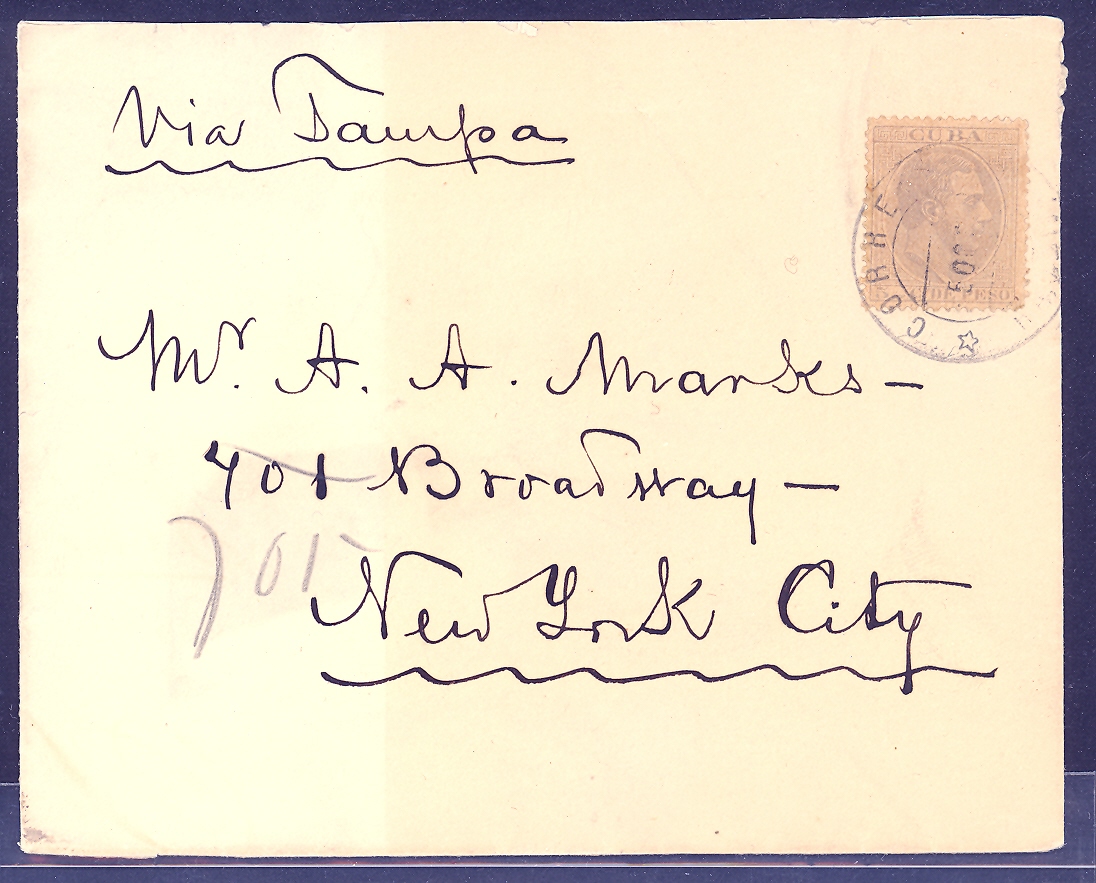 Via Tampa
CUBA
DE PESO
CORRE
Mr. A. A. Marks –
701 Broadway –
701
New York City